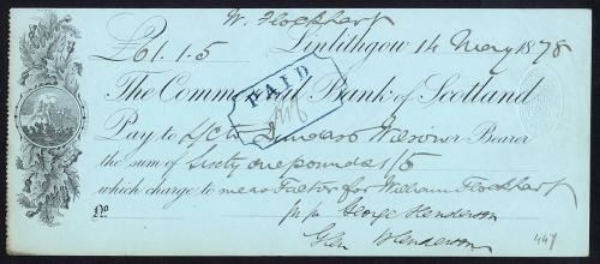 W. Flockhart
£61.1.5 Linlithgow 14 May 1878
PAID
The Commercial Bank of Scotland
Pay to Dundas & Wilson or Bearer
the sum of Sixty one pounds 1/5
which charge to me as Factor for William Flockhart
No. p.p. George Henderson
Glen Henderson
447